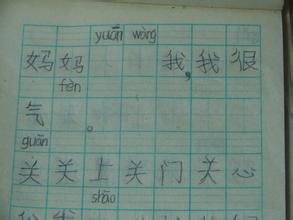 yuān wàng
妈妈 我,我很
fèn
气 。
guān
关关上关门关心
shāo